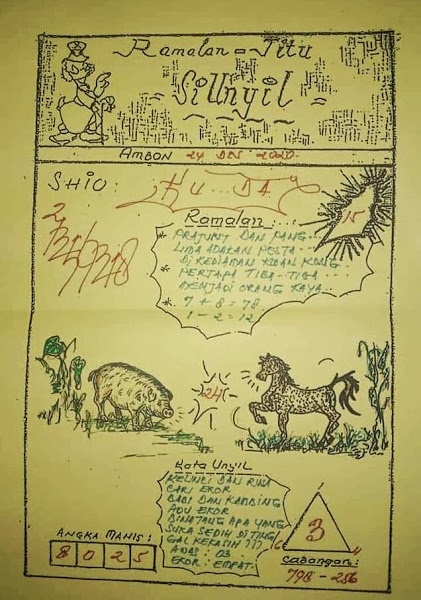 Ramalan = Jitu
Si Unyil
AMBON 24 DES 2020.
SHIO : KU...DA
15
Ramalan :
* PRAJURIT DAN PANG...
LIMA ADAKAN PESTA...
DI KEDIAMAN KOAN KONG.
PERTAPA TIBA-TIBA...
MENJADI ORANG KAYA..
* 7 + 8 = 78
1 - 2 = 12
24
Kata Unyil
KELINCI DAN RUSA
CARI EKOR
BABI DAN KAMBING
ADU EKOR
BINATANG APA YANG
SUKA SEDIH DITING
GAL KEKASIH ???
AWAS : 03.
EKOR : EMPAT.
ANGKA MANIS :
8 0 2 5
1
3
6 4
Cabangan :
798 - 256